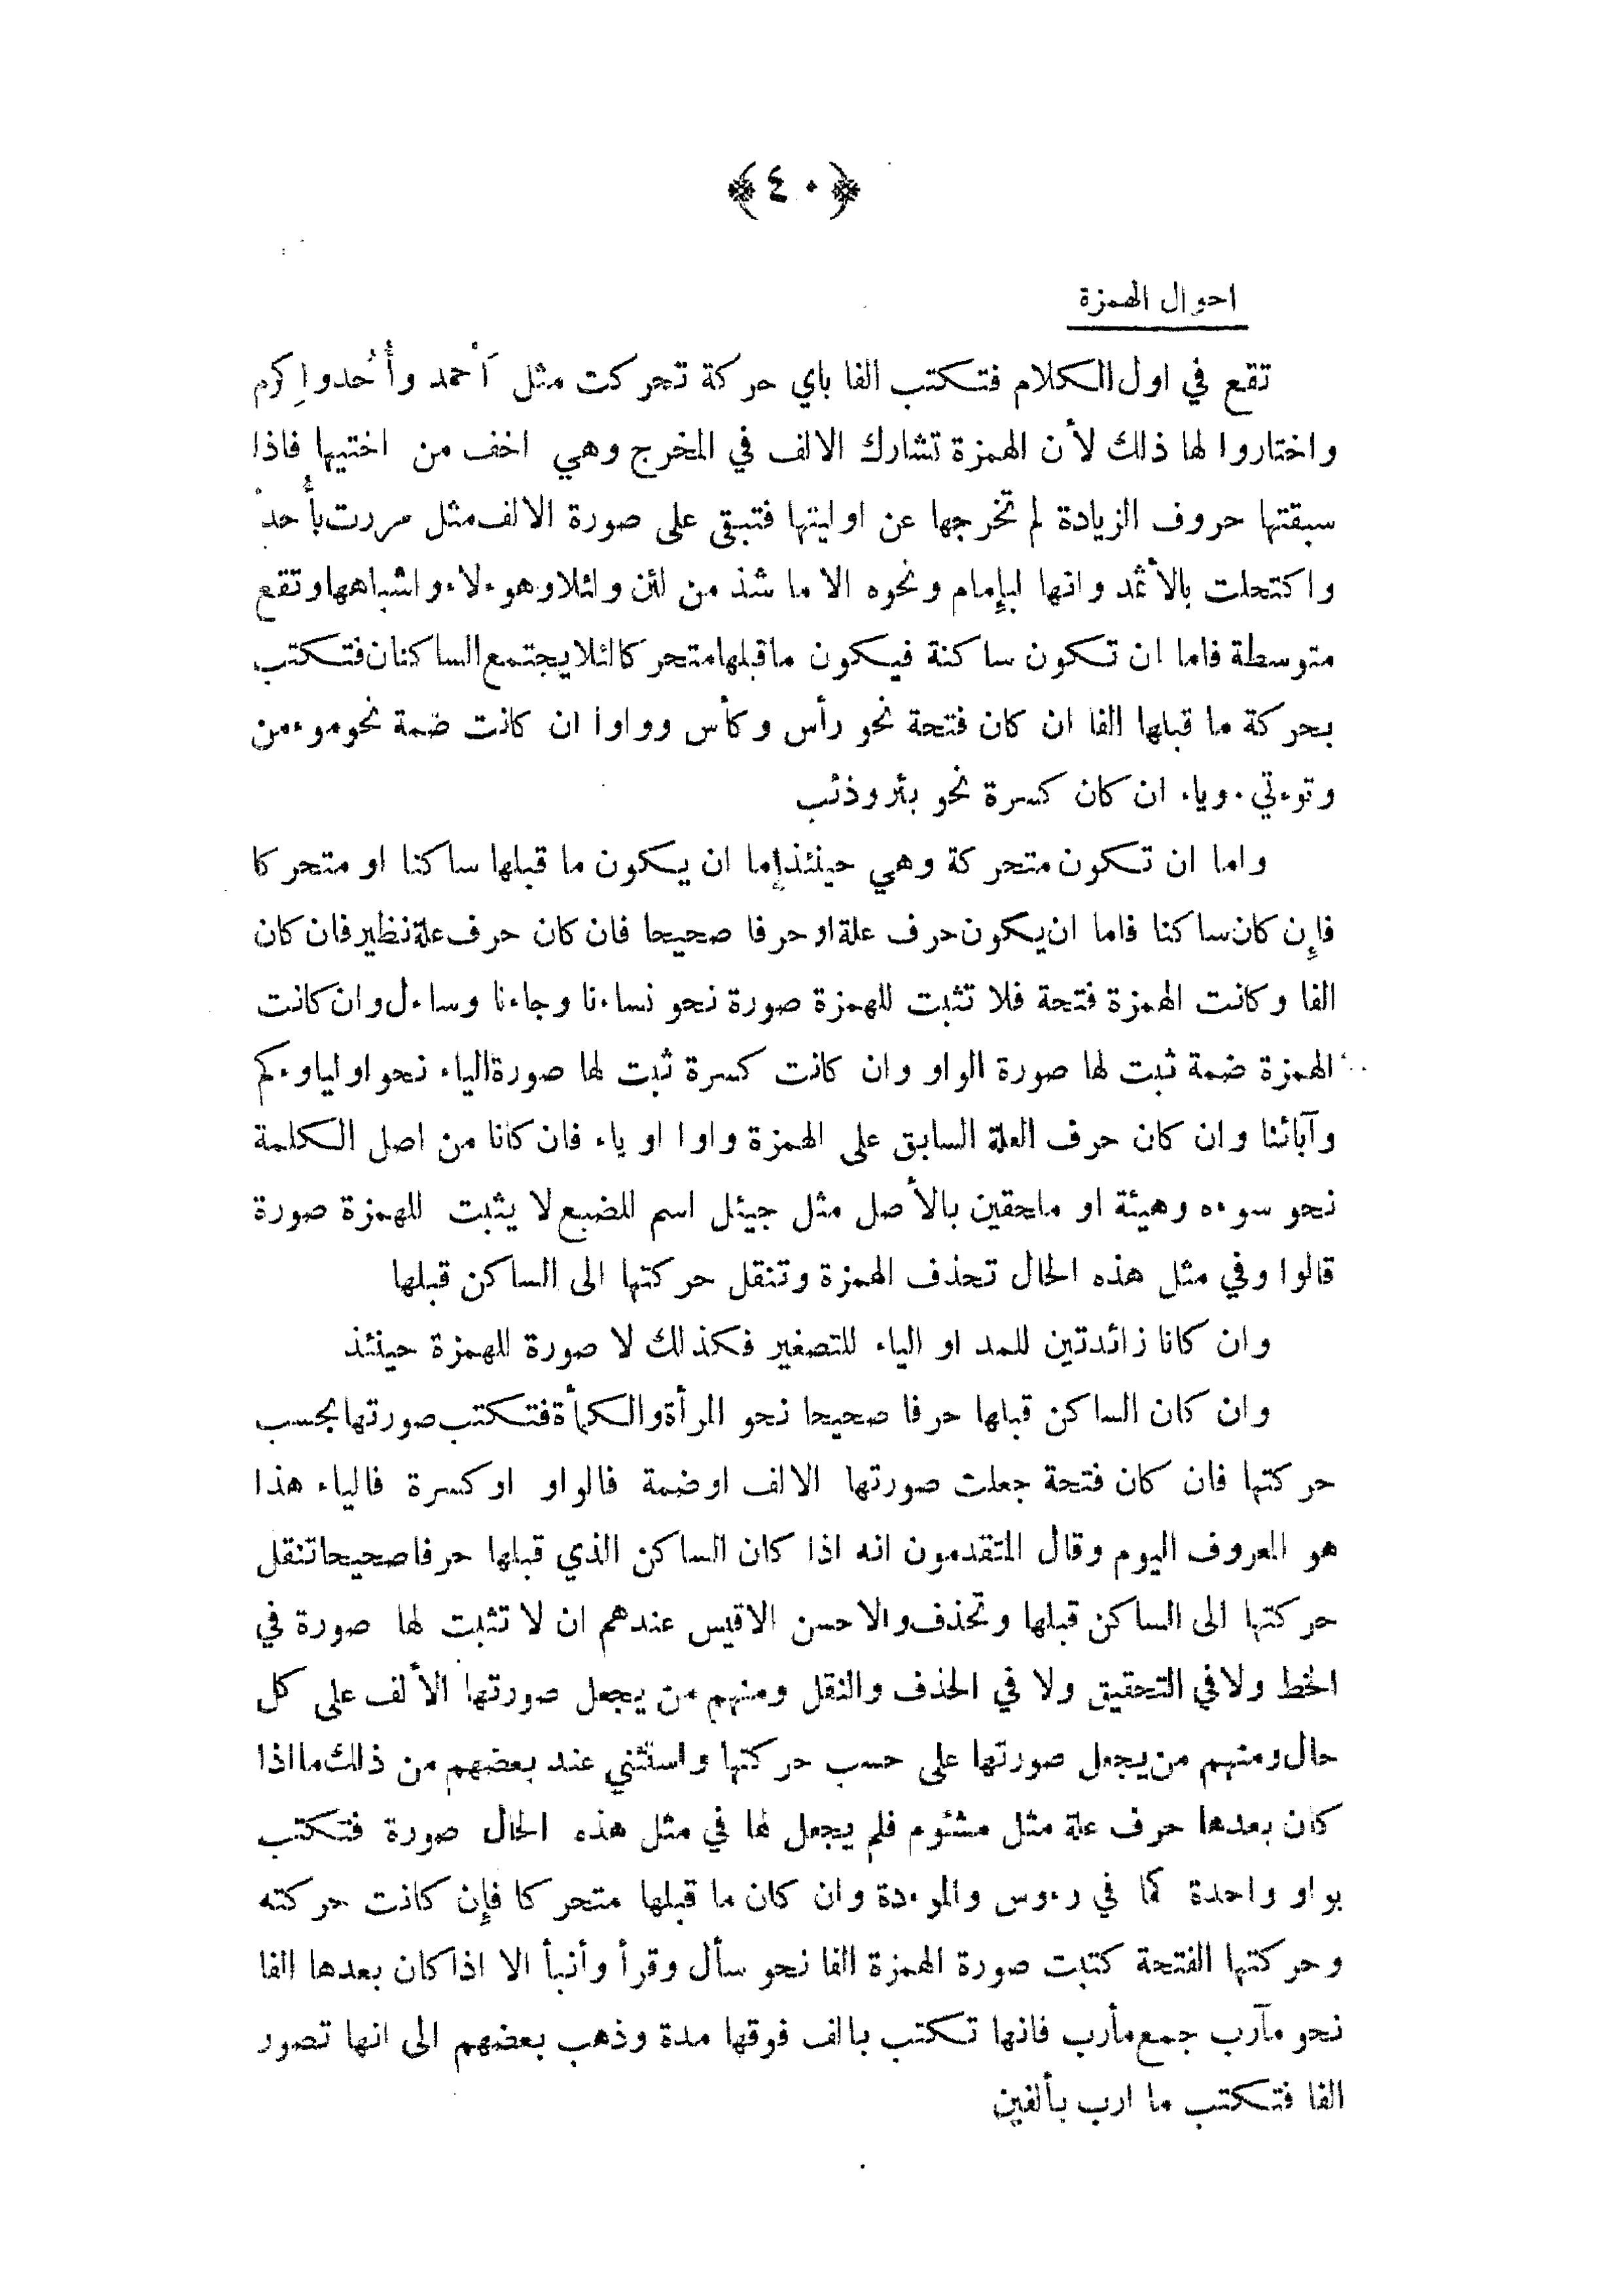 ﴿٤٠﴾
احوال الهمزة
تقع في اول الكلام فتكتب الفا باي حركة تحركت مثل اَحمد واُحُد واِكرم
واختاروا لها ذلك لأن الهمزة تشارك الالف في المخرج وهي اخف من اختيها فاذا
سبقتها حروف الزيادة لم تخرجها عن اوليتها فتبقى على صورة الالف مثل مررت بأُحد
واكتحلت بالأثمد وانها لبإمام ونحوه الا ما شذ من لئن ولئلا وهوءلاء واشباهها وتقع
متوسطة فاما ان تكون ساكنة فيكون ما قبلها متحركا لئلا يجتمع الساكنان فتكتب
بحركة ما قبلها الفا ان كان فتحة نحو رأس وكأس وواوا ان كانت ضمة نحو موءمن
وتوءتي. وياء ان كان كسرة نحو بئر وذئب
واما ان تكون متحركة وهي حينئذ إما ان يكون ما قبلها ساكنا او متحركا
فإن كان ساكنا فاما ان يكون حرف علة او حرفا صحيحا فان كان حرف علة نظير فان كان
الفا وكانت الهمزة فتحة فلا تثبت للهمزة صورة نحو نساءنا وجاءنا وساءل وان كانت
الهمزة ضمة ثبت لها صورة الواو وان كانت كسرة ثبت لها صورة الياء نحو اولياوءكم
وآبائنا وان كان حرف العلة السابق على الهمزة واوا او ياء فان كانا من اصل الكلمة
نحو سوءه وهيئة او ملحقين بالأصل مثل جيئل اسم للضبع لا يثبت للهمزة صورة
قالوا وفي مثل هذه الحال تحذف الهمزة وتنقل حركتها الى الساكن قبلها
وان كانا زائدتين للمد او الياء للتصغير فكذلك لا صورة للهمزة حينئذ
وان كان الساكن قبلها حرفا صحيحا نحو المرأة والكمأة فتكتب صورتها بحسب
حركتها فان كان فتحة جعلت صورتها الالف او ضمة فالواو او كسرة فالياء هذا
هو المعروف اليوم وقال المتقدمون انه اذا كان الساكن الذي قبلها حرفا صحيحا تنقل
حركتها الى الساكن قبلها وتحذف والاحسن الاقيس عندهم ان لا تثبت لها صورة في
الخط ولا في التحقيق ولا في الحذف والنقل ومنهم من يجعل صورتها الألف على كل
حال ومنهم من يجعل صورتها على حسب حركتها واستثني عند بعضهم من ذلك ما اذا
كان بعدها حرف علة مثل مشئوم فلم يجعل لها في مثل هذه الحال صورة فتكتب
بواو واحدة كما في رءوس والموءدة وان كان ما قبلها متحركا فإن كانت حركته
وحركتها الفتحة كتبت صورة الهمزة الفا نحو سأل وقرأ وأنبأ الا اذا كان بعدها الفا
نحو مآرب جمع مأرب فانها تكتب بالف فوقها مدة وذهب بعضهم الى انها تصور
الفا فتكتب ما ارب بألفين